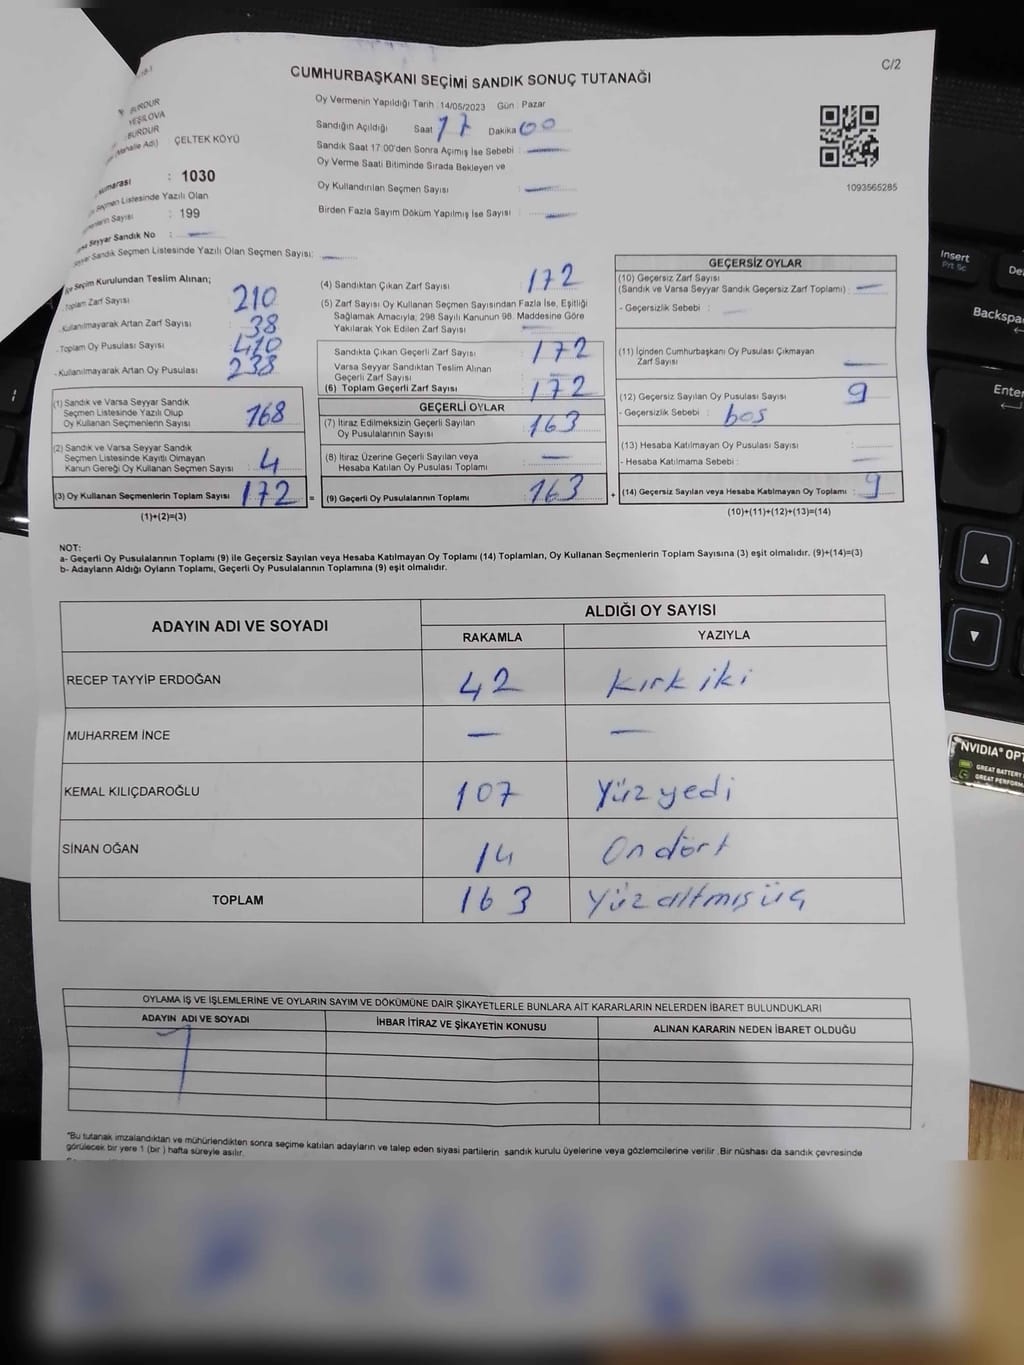 C/2
CUMHURBAŞKANI SEÇİMİ SANDIK SONUÇ TUTANAĞI
BURDUR
YEŞİLOVA
BURDUR
(Mahalle Adı) ÇELTEK KÖYÜ
: 1030
Seçmen Listesinde Yazılı Olan
Sayısı : 199
Seyyar Sandık No : —
Seyyar Sandık Seçmen Listesinde Yazılı Olan Seçmen Sayısı: —
Oy Vermenin Yapıldığı Tarih : 14/05/2023 Gün : Pazar
Sandığın Açıldığı Saat 17 Dakika 00
Sandık Saat 17:00'den Sonra Açımış İse Sebebi : —
Oy Verme Saati Bitiminde Sırada Bekleyen ve
Oy Kullandırılan Seçmen Sayısı : —
Birden Fazla Sayım Döküm Yapılmış İse Sayısı : —
1093565285
Seçim Kurulundan Teslim Alınan;
Toplam Zarf Sayısı 210
Kullanılmayarak Artan Zarf Sayısı : 38
Toplam Oy Pusulası Sayısı : 410
Kullanılmayarak Artan Oy Pusulası 238
(1) Sandık ve Varsa Seyyar Sandık
Seçmen Listesinde Yazılı Olup
Oy Kullanan Seçmenlerin Sayısı 168
(2) Sandık ve Varsa Seyyar Sandık
Seçmen Listesinde Kayıtlı Olmayan
Kanun Gereği Oy Kullanan Seçmen Sayısı 4
(3) Oy Kullanan Seçmenlerin Toplam Sayısı 172 =
(1)+(2)=(3)
(4) Sandıktan Çıkan Zarf Sayısı : 172
(5) Zarf Sayısı Oy Kullanan Seçmen Sayısından Fazla İse, Eşitliği
Sağlamak Amacıyla; 298 Sayılı Kanunun 98. Maddesine Göre
Yakılarak Yok Edilen Zarf Sayısı : —
Sandıkta Çıkan Geçerli Zarf Sayısı : 172
Varsa Seyyar Sandıktan Teslim Alınan
Geçerli Zarf Sayısı :
(6) Toplam Geçerli Zarf Sayısı : 172
GEÇERLİ OYLAR
(7) İtiraz Edilmeksizin Geçerli Sayılan
Oy Pusulalarının Sayısı : 163
(8) İtiraz Üzerine Geçerli Sayılan veya
Hesaba Katılan Oy Pusulası Toplamı : —
(9) Geçerli Oy Pusulalarının Toplamı : 163 +
GEÇERSİZ OYLAR
(10) Geçersiz Zarf Sayısı
(Sandık ve Varsa Seyyar Sandık Geçersiz Zarf Toplamı) : —
- Geçersizlik Sebebi : —
(11) İçinden Cumhurbaşkanı Oy Pusulası Çıkmayan
Zarf Sayısı : —
(12) Geçersiz Sayılan Oy Pusulası Sayısı : 9
- Geçersizlik Sebebi : boş
(13) Hesaba Katılmayan Oy Pusulası Sayısı :
- Hesaba Katılmama Sebebi : —
(14) Geçersiz Sayılan veya Hesaba Katılmayan Oy Toplamı : 9
(10)+(11)+(12)+(13)=(14)
NOT:
a- Geçerli Oy Pusulalarının Toplamı (9) ile Geçersiz Sayılan veya Hesaba Katılmayan Oy Toplamı (14) Toplamları, Oy Kullanan Seçmenlerin Toplam Sayısına (3) eşit olmalıdır. (9)+(14)=(3)
b- Adayların Aldığı Oyların Toplamı, Geçerli Oy Pusulalarının Toplamına (9) eşit olmalıdır.
ADAYIN ADI VE SOYADI ALDIĞI OY SAYISI
RAKAMLA YAZIYLA
RECEP TAYYİP ERDOĞAN 42 Kırk iki
MUHARREM İNCE — —
KEMAL KILIÇDAROĞLU 107 Yüz yedi
SİNAN OĞAN 14 On dört
TOPLAM 163 Yüz altmış üç
OYLAMA İŞ VE İŞLEMLERİNE VE OYLARIN SAYIM VE DÖKÜMÜNE DAİR ŞİKAYETLERLE BUNLARA AİT KARARLARIN NELERDEN İBARET BULUNDUKLARI
ADAYIN ADI VE SOYADI İHBAR İTİRAZ VE ŞİKAYETİN KONUSU ALINAN KARARIN NEDEN İBARET OLDUĞU
"Bu tutanak imzalandıktan ve mühürlendikten sonra seçime katılan adayların ve talep eden siyasi partilerin sandık kurulu üyelerine veya gözlemcilerine verilir. Bir nüshası da sandık çevresinde
görülecek bir yere 1 (bir ) hafta süreyle asılır.
Insert
Prt Sc
Backspa
Enter
NVIDIA® OPT
GREAT BATTERY
GREAT PERFORM